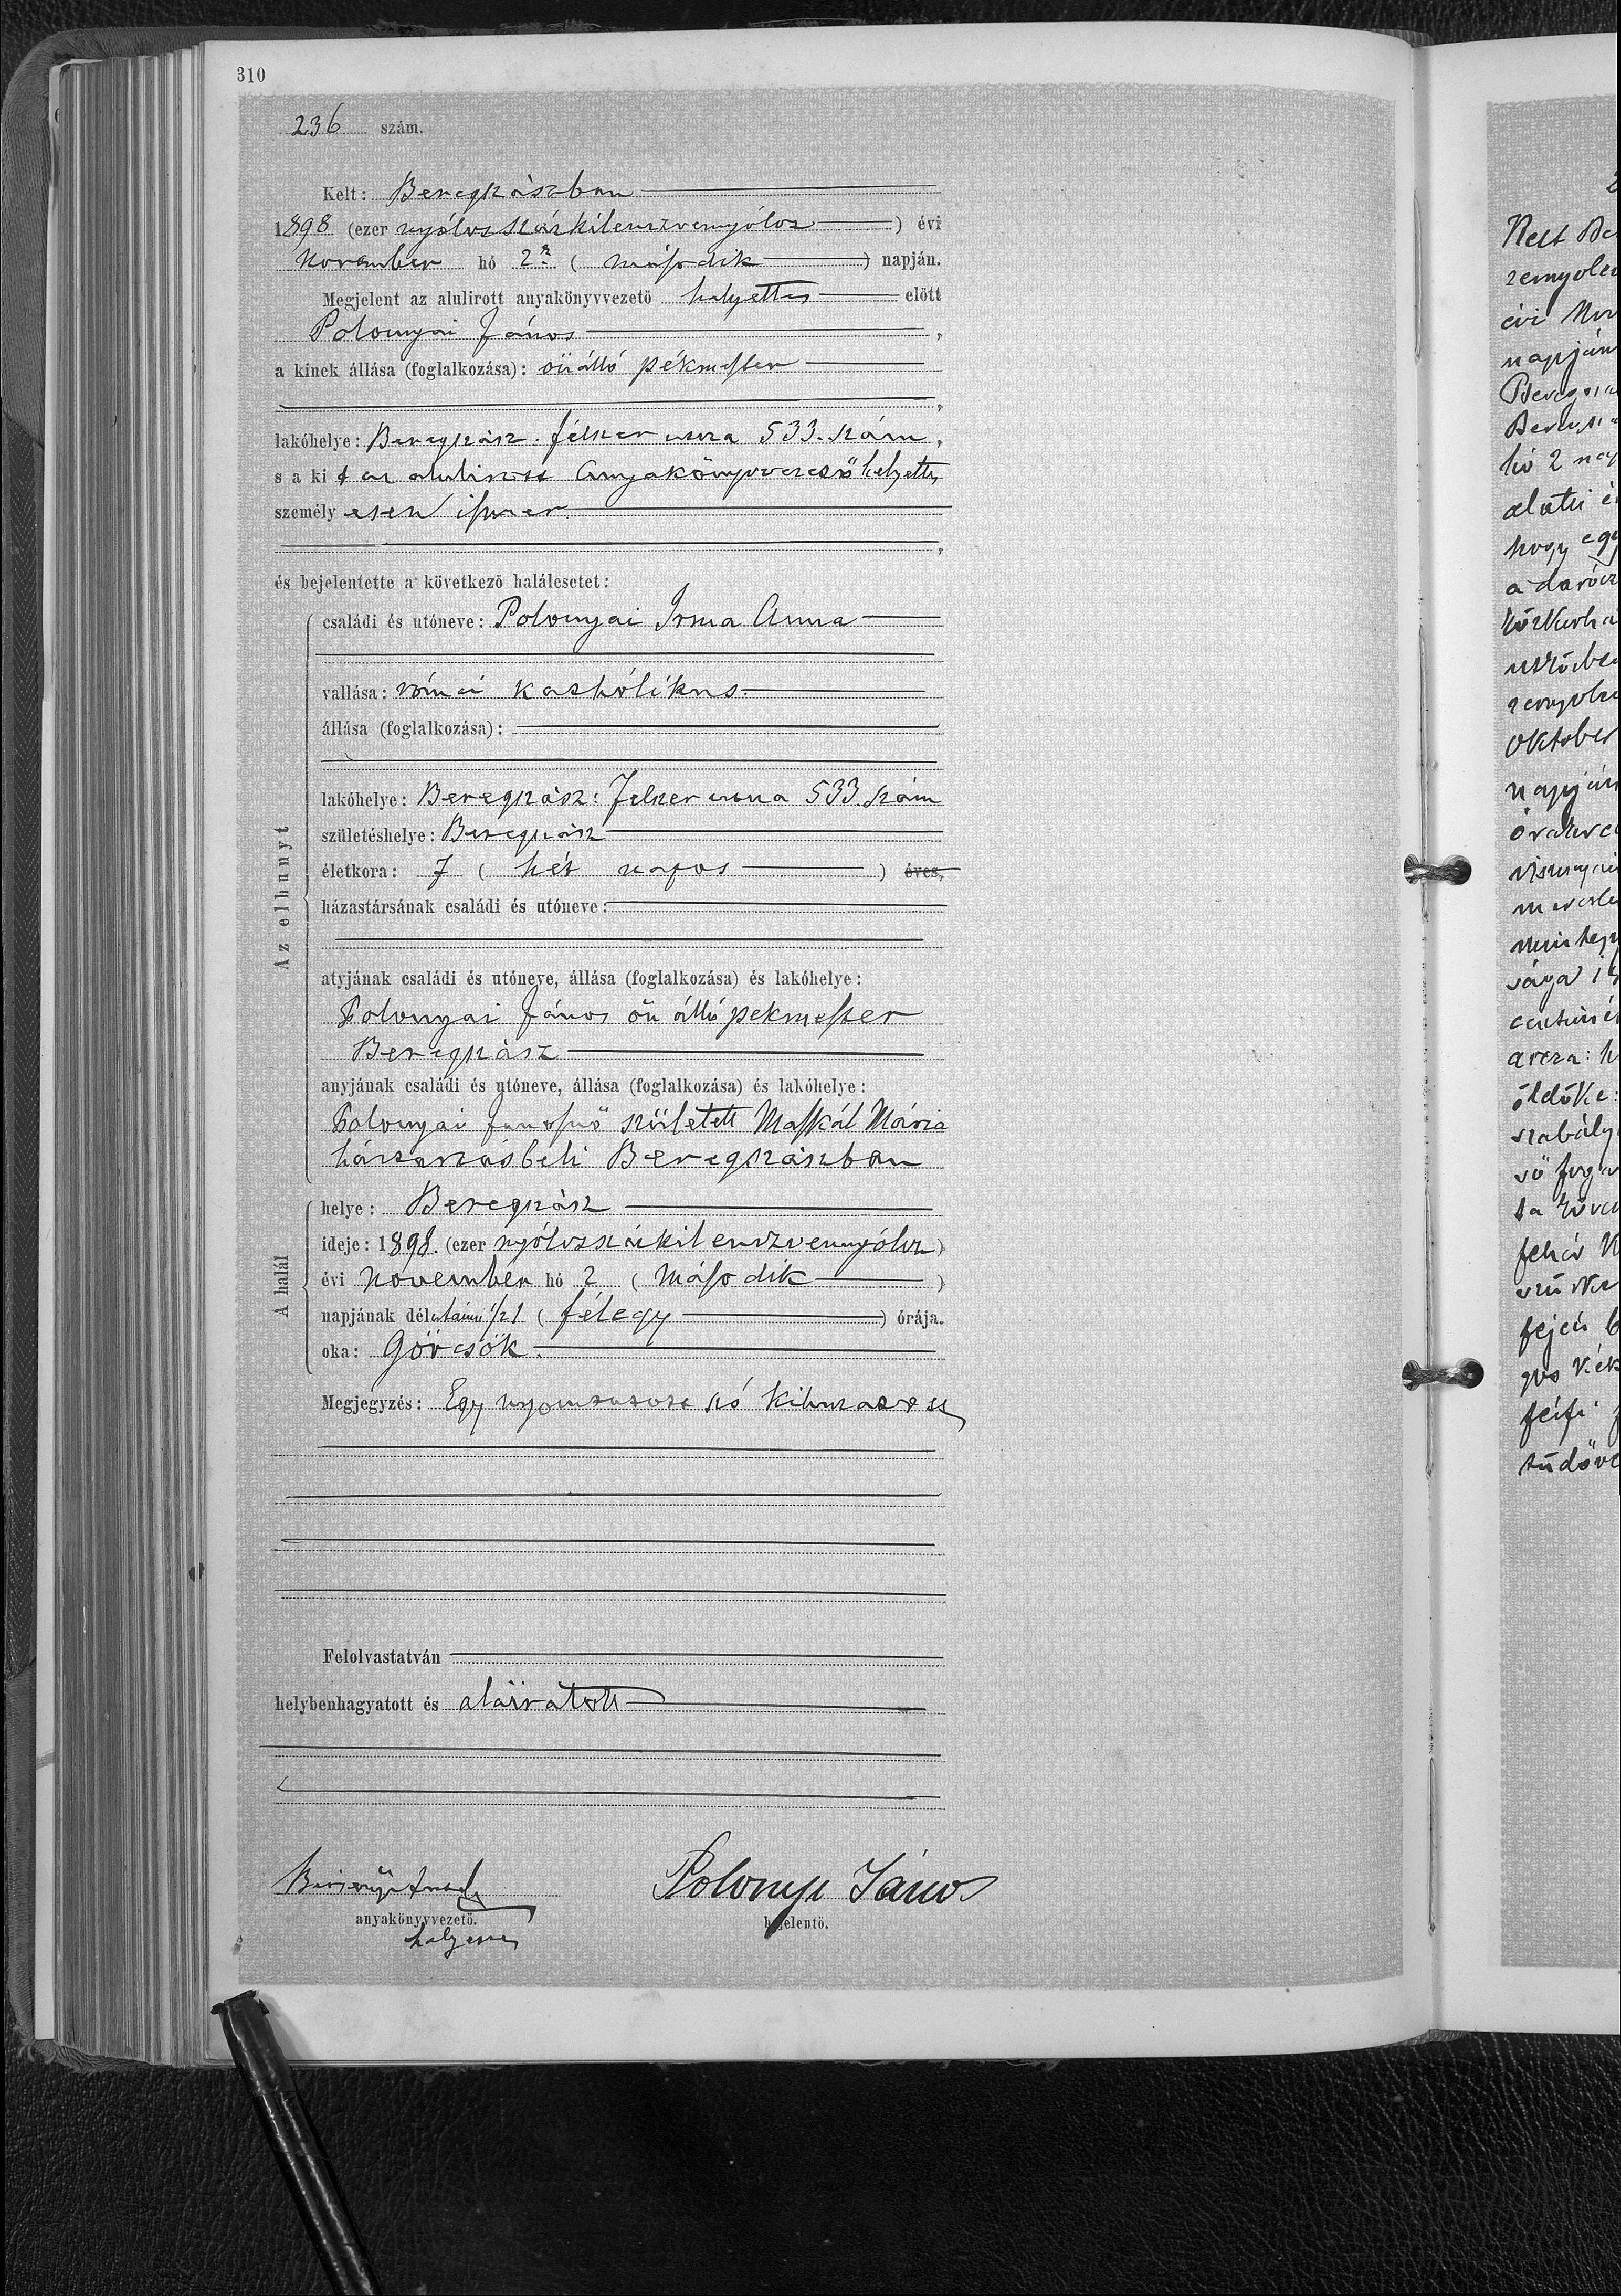 310
236 szám.
Kelt: Beregszászban
1898 (ezer nyólcszázkilenczvennyólcz) évi
November hó 2 (második) napján.
Megjelent az alulirott anyakönyvvezető helyettes előtt
Polonyai János,
a kinek állása (foglalkozása): önálló pékmester
,
lakóhelye: Beregszász. félszer utcza 533. szám,
s a kit az alulirott anyakönyvvezető helyettes
személyesen ismer
,
és bejelentette a következő halálesetet:
Az elhunyt
családi és utóneve: Polonyai Irma Anna
vallása: római katholikus.
állása (foglalkozása):
lakóhelye: Beregszász: Felszer utcza 533. szám
születéshelye: Beregszász
életkora: 7 (hét napos) éves,
házastársának családi és utóneve:
atyjának családi és utóneve, állása (foglalkozása) és lakóhelye:
Polonyai János önálló pékmester
Beregszász
anyjának családi és utóneve, állása (foglalkozása) és lakóhelye:
Polonyai Jánosné született Maskál Mária
háztartásbeli Beregszászban
A halál
helye: Beregszász
ideje: 1898. (ezer nyólczszázkilenczvennyólcz)
évi november hó 2 (második)
napjának délutáni 1/2 1 (félegy) órája.
oka: Görcsök.
Megjegyzés: Egy nyomtatott szó kihuzatott
Felolvastatván
helybenhagyatott és aláiratott
anyakönyvvezető.
helyettes
Polonyi János
bejelentő.
Kelt Be
évi Nov
napján
hó 2 nap
aluli
hogy egy
Oktober
napján
fehér